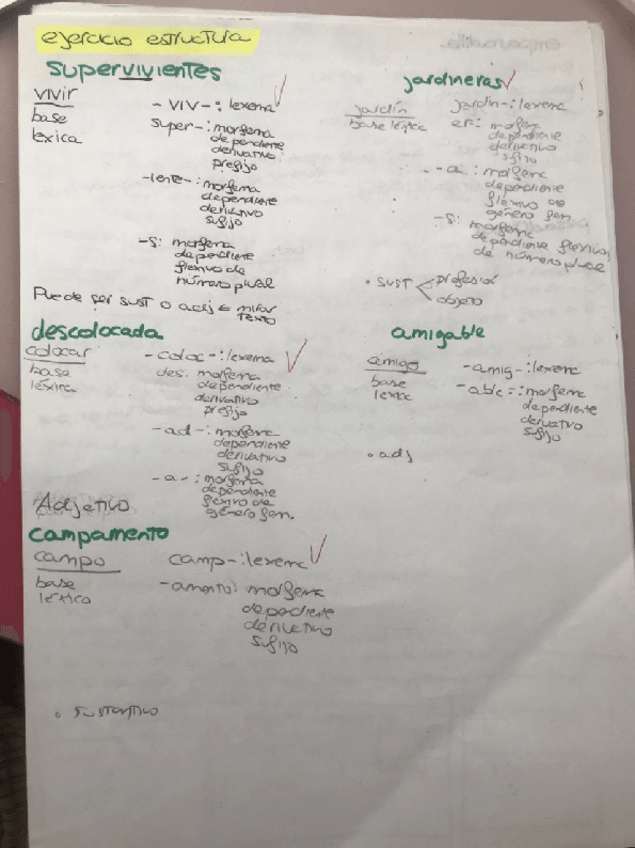 ejercicio estructura
supervivientes
vivir
base
léxica
- VIV - : lexema
super - : morfema
dependiente
derivativo
prefijo
- iente - : morfema
dependiente
derivativo
sufijo
- S : morfema
dependiente
flexivo de
número plural
Puede ser sust o adj mirar
texto
jardineras
jardín
base léxica
jardin - : lexema
er : morfema
dependiente
derivativo
sufijo
- a : morfema
dependiente
flexivo de
género fem.
- S : morfema
dependiente flexivo
de número plural
• sust profesión
objeto
descolocada
colocar
base
léxica
- coloc - : lexema
des : morfema
dependiente
derivativo
prefijo
- ad - : morfema
dependiente
derivativo
sufijo
- a - : morfema
dependiente
flexivo de
género fem.
Adjetivo
amigable
amigo
base
léxica
- amig - : lexema
- able - : morfema
dependiente
derivativo
sufijo
• adj
campamento
campo
base
léxico
camp - : lexema
- amento : morfema
dependiente
derivativo
sufijo
• sustantivo